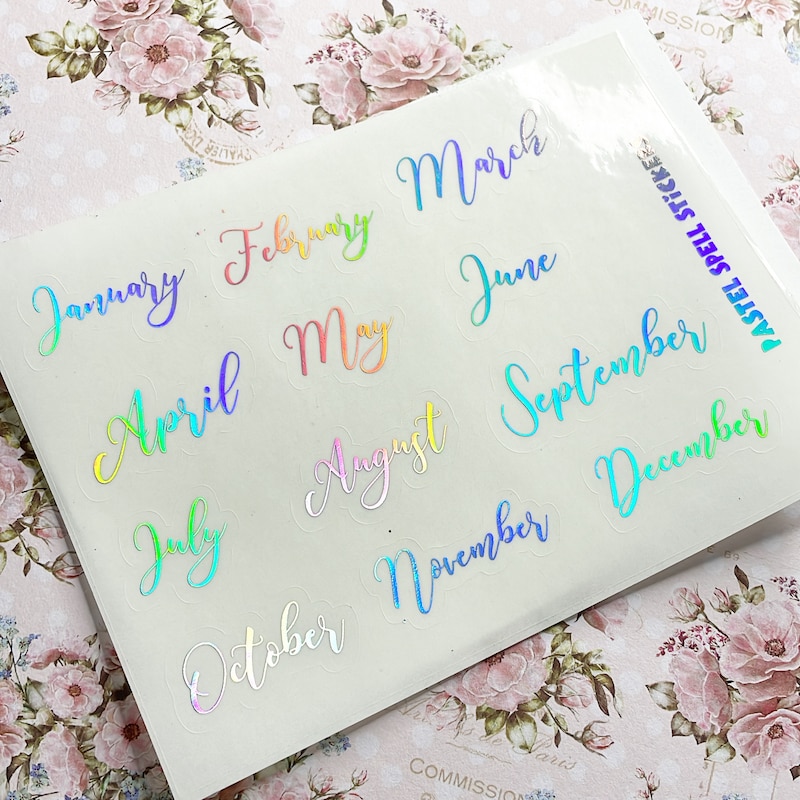 January
February
March
April
May
June
July
August
September
October
November
December
PASTEL SPELL
COMMISSION
COMMISSION